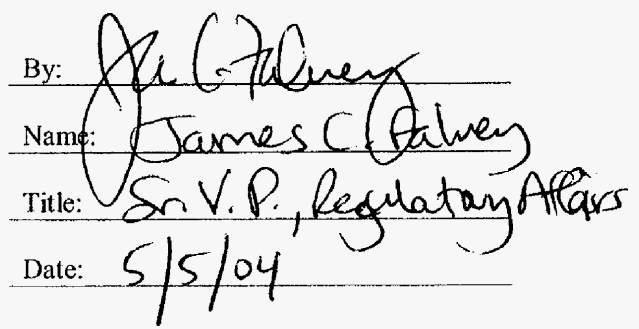 By: James C. Falvey
Name: James C. Falvey
Title: Sr. V.P., Regulatory Affairs
Date: 5/5/04